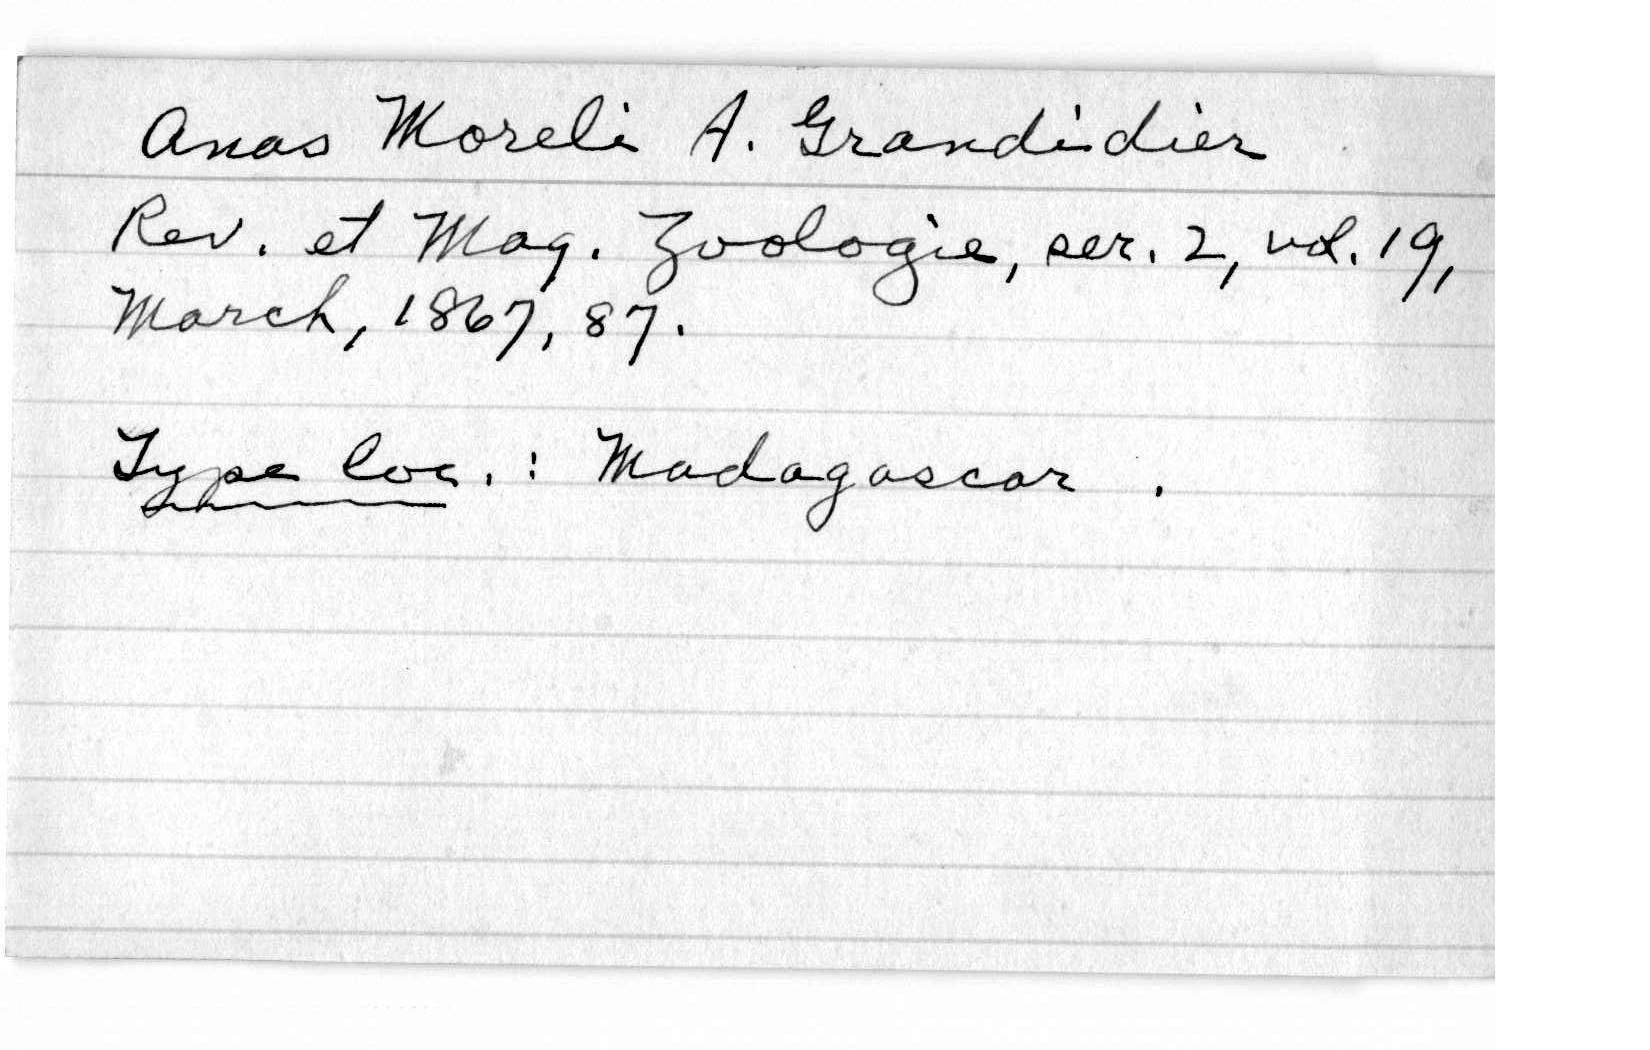 Anas Moreli A. Grandidier
Rev. et Mag. Zoologie, ser. 2, vol. 19,
March, 1867, 87.
Type loc. : Madagascar .